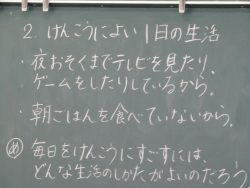 2. けんこうによい1日の生活
・夜おそくまでテレビを見たり、
ゲームをしたりしているから。
・朝ごはんを食べていないから。
め 毎日をけんこうにすごすには、
どんな生活のしかたがよいのだろう